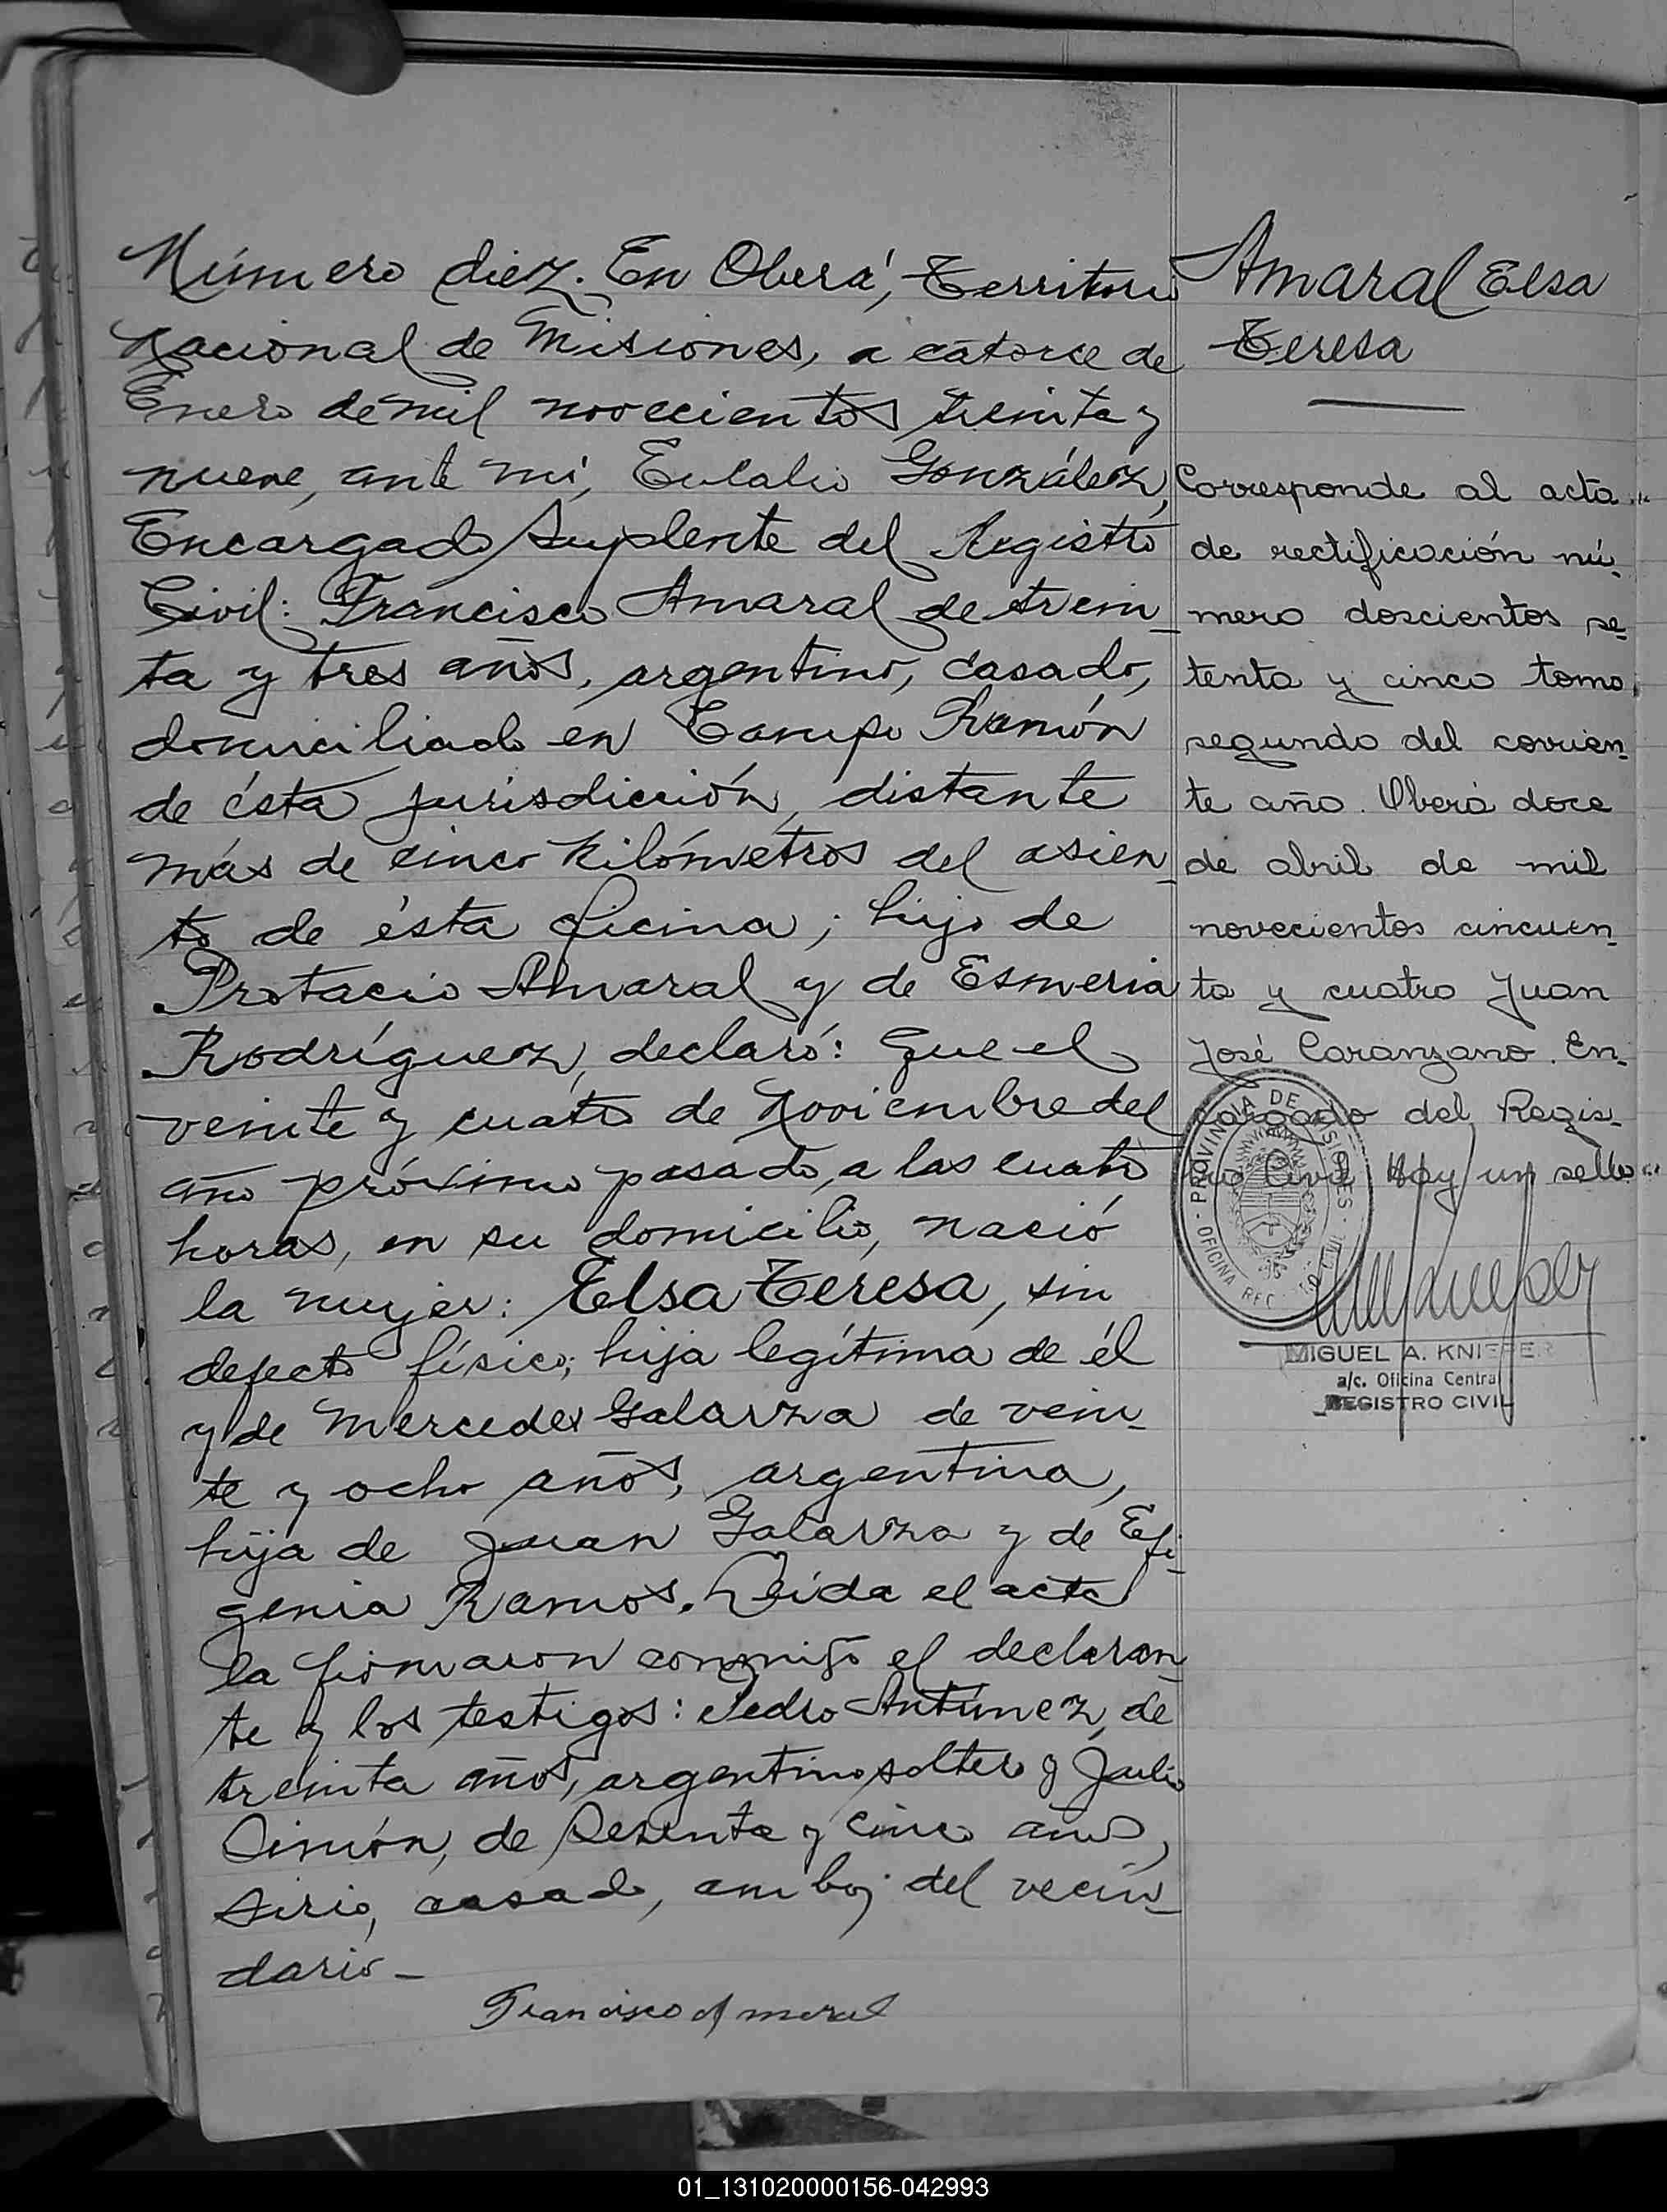 Número diez. En Oberá, Territorio
Nacional de Misiones, a catorce de
Enero de mil novecientos treinta y
nueve, ante mí, Eulalio González,
Encargado Suplente del Registro
Civil: Francisco Amaral de trein_
ta y tres años, argentino, casado,
domiciliado en Campo Ramón
de ésta jurisdicción, distante
más de cinco kilómetros del asien_
to de ésta oficina; hijo de
Protacio Amaral y de Esmeria
Rodríguez, declaró: Que el
veinte y cuatro de Noviembre del
año próximo pasado, a las cuatro
horas, en su domicilio, nació
la mujer: Elsa Teresa, sin
defecto físico; hija legítima de él
y de Mercedes Galarza de vein_
te y ocho años, argentina,
hija de Juan Galarza y de Efi_
genia Ramos. Leída el acta
la firmaron conmigo el declaran_
te y los testigos: Pedro Antúnez, de
treinta años, argentino soltero y Julio
Simón, de sesenta y cinco años,
sirio, casado, ambos del vecin_
dario_
Francisco Amaral
Amaral Elsa
Teresa
Corresponde al acta
de rectificación nú_
mero doscientos se_
tenta y cinco tomo
segundo del corrien_
te año. Oberá doce
de abril de mil
novecientos cincuen_
ta y cuatro Juan
José Caranzano. En_
cargado del Regis_
tro Civil Hay un sello
PROVINCIA DE MISIONES
OFICINA REG. CIVIL
MIGUEL A. KNIEPER
a/c. Oficina Central
REGISTRO CIVIL
01_131020000156-042993